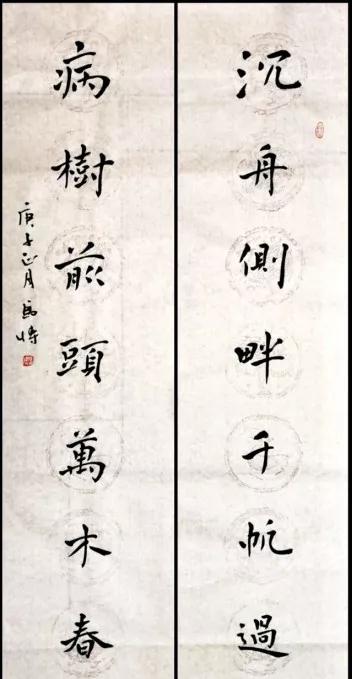 沉舟側畔千帆過
病樹前頭萬木春
庚子正月